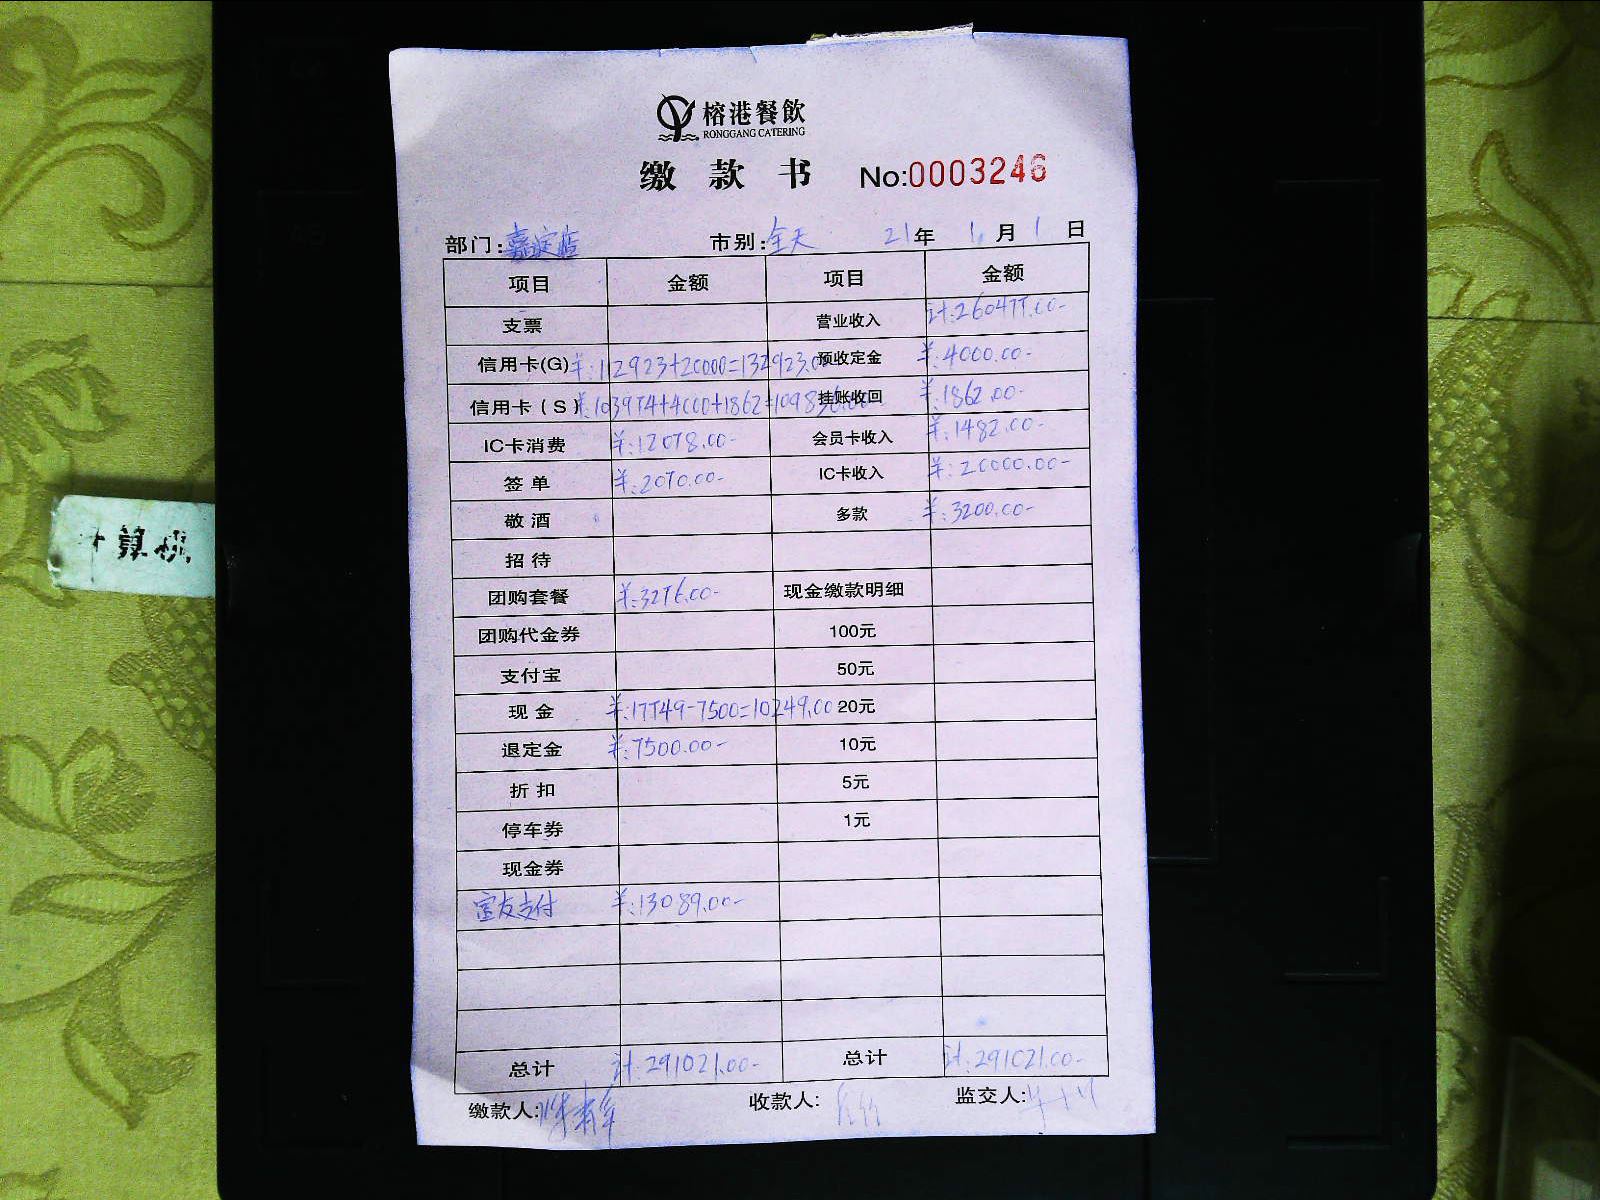 榕港餐飲
RONGGANG CATERING
缴款书 No:0003246
部门: 市别:全天 21年 1月 1日
项目 金额 项目 金额
支票 营业收入 计:260477.00-
信用卡(G) ¥:112923+20000=132923.00 预收定金 ¥:4000.00-
信用卡(S) ¥:103974+4000+1862=109836.00 挂账收回 ¥:1862.00-
IC卡消费 ¥:12078.00- 会员卡收入 ¥:1482.00-
签单 ¥:2070.00- IC卡收入 ¥:20000.00-
敬酒 多款 ¥:3200.00-
招待
团购套餐 ¥:3276.00- 现金缴款明细
团购代金券 100元
支付宝 50元
现金 ¥:17749-7500=10249.00 20元
退定金 ¥:7500.00- 10元
折扣 5元
停车券 1元
现金券
支付 ¥:13089.00-
总计 计:291021.00- 总计 计:291021.00-
缴款人: 收款人: 监交人:
计算机